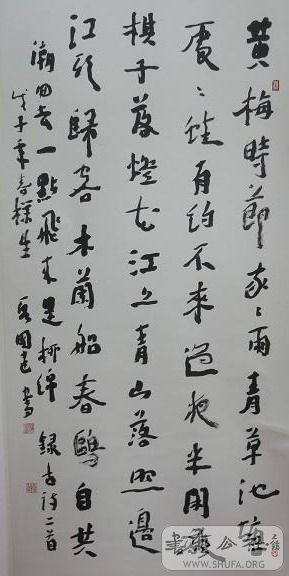 黄梅時節家々雨青草池塘
處々蛙有约不來過夜半閑敲
棋子落燈花江上青山落照邊
江頭歸客木蘭船春鷗自共
潮回去一點飛来是柳綿 録古詩二首
戊子年春 生 國建書
WWW.SHUFA.ORG